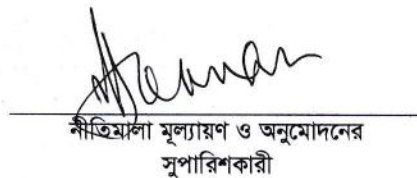 নীতিমালা মূল্যায়ণ ও অনুমোদনের
সুপারিশকারী